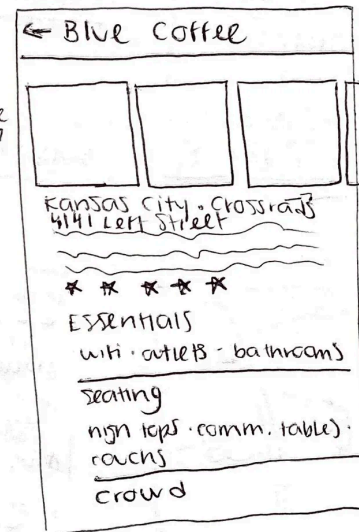 ← Blue Coffee
Kansas City · Crossroads
4141 Left Street
Essentials
wifi · outlets - bathrooms
Seating
high tops · comm. tables ·
couchs
crowd